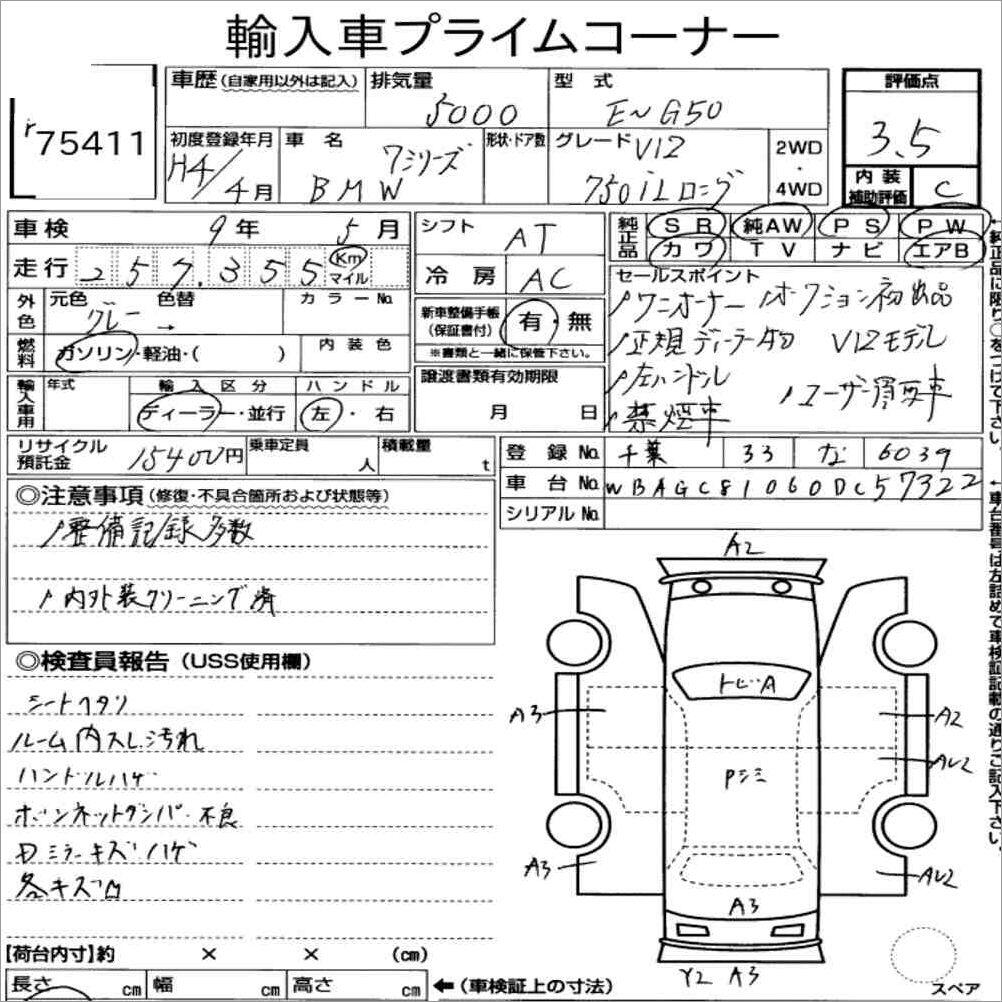 輸入車プライムコーナー
r75411
車歴 (自家用以外は記入)
排気量
5000
型式
E〜G50
評価点
3.5
初度登録年月
H4/4月
車名
7シリーズ
BMW
形状・ドア数
グレード
V12
750iLロング
2WD
・
4WD
内装
補助評価
C
車検 9年 5月
走行 257,355 Km
マイル
シフト AT
冷房 AC
純正品
SR 純AW PS PW
カワ TV ナビ エアB
外色
元色 色替 カラーNo.
グレー →
燃料
ガソリン・軽油・( )
内装色
新車整備手帳
(保証書付)
有・無
※書類と一緒に保管下さい。
セールスポイント
ワンオーナー オークション初出品
正規ディーラー物 V12モデル
左ハンドル
ユーザー買取車
禁煙車
輸入車用
年式 輸入区分 ハンドル
ディーラー・並行 左・右
譲渡書類有効期限
月 日
リサイクル
預託金
15400円
乗車定員
人
積載量
t
登録No. 千葉 33 な 6039
車台No. WBAGC81060DC57322
シリアルNo.
◎注意事項 (修復・不具合箇所および状態等)
整備記録多数
内外装クリーニング済
◎検査員報告 (USS使用欄)
シートヘタリ
ルーム内スレ汚れ
ハンドルハゲ
ボンネットダンパー不良
Dミラーキズハゲ
各キズ凹
A2
トビA
A3
A2
Pシミ
AU2
A3
AU2
A3
Y2 A3
スペア
【荷台内寸】約 × × (cm)
長さ cm 幅 cm 高さ cm
←(車検証上の寸法)
←純正品に限り○をつけて下さい。
←車台番号は左詰めで車検証記載の通りご記入下さい。